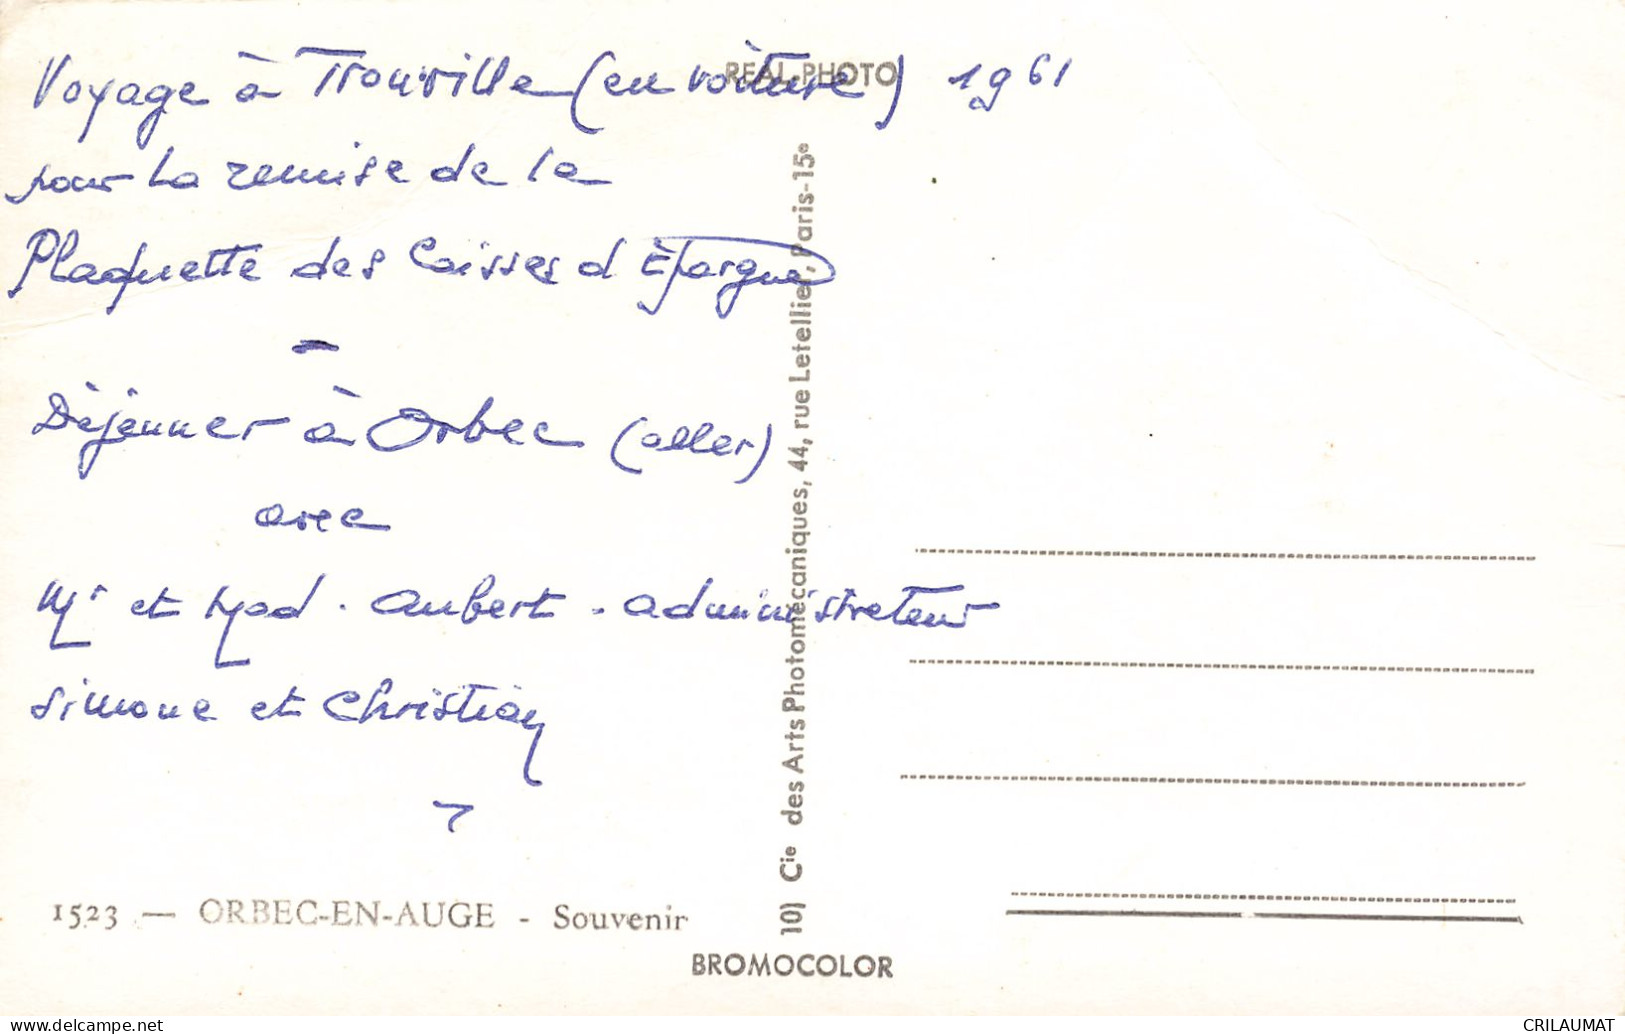 Voyage à Trouville (en voiture) 1961
REAL-PHOTO
pour la remise de la
Plaquette des Caisses d Èpargne
-
Dèjeuner à Orbec (aller)
avec
Mr et Mad. Aubert. administrateur
Simone et Christian
1523 — ORBEC-EN-AUGE - Souvenir
10) Cie des Arts Photomécaniques, 44, rue Letellier, Paris-15e
BROMOCOLOR
www.delcampe.net
CRILAUMAT